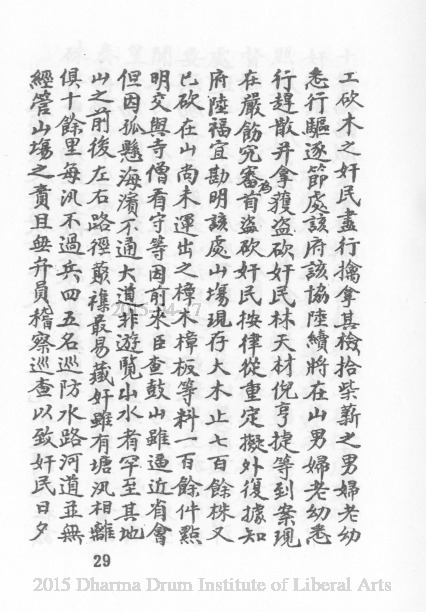 工砍木之奸民盡行擒拿其檢拾柴薪之男婦老幼
悉行驅逐節處該府該協陸續將在山男婦老幼悉
行趕散并拿獲盜砍奸民林天材倪亨捷等到案現
在嚴飭究審為首盜砍奸民按律從重定擬外復據知
府陸福宜勘明該處山塲現存大木止七百餘株又
已砍在山尚未運出之樟木樟板等料一百餘件點
明交與寺僧看守等因前來臣查鼓山雖逼近省會
但因孤懸海濱不通大道非遊覽山水者罕至其地
山之前後左右路徑叢襍最易藏奸雖有塘汛相離
俱十餘里每汛不過兵四五名巡防水路河道並無
經管山塲之責且無弁員稽察巡查以致奸民日夕
29
2015 Dharma Drum Institute of Liberal Arts